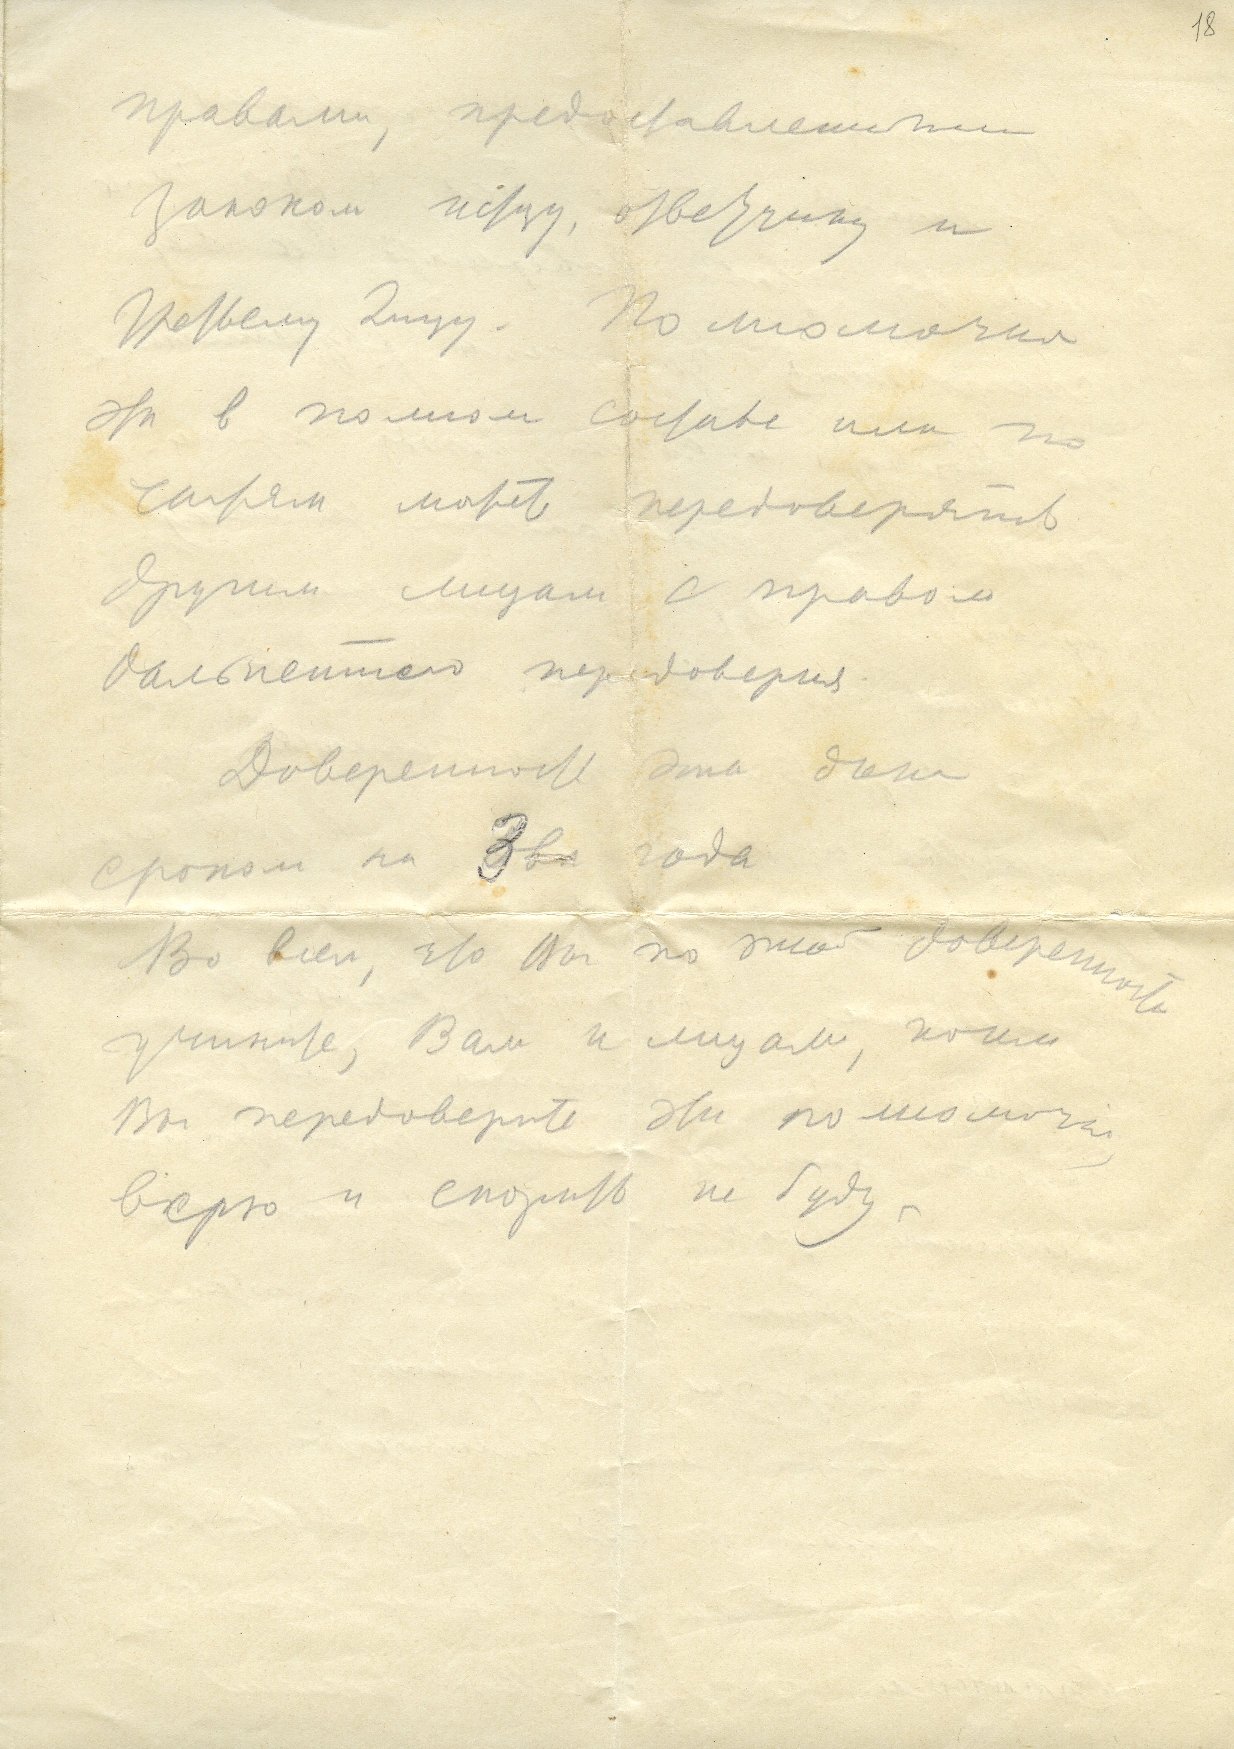 18
правами, предоставленными
законом истцу, ответчику и
третьему лицу. Полномочия
эти в полном составе или по
частям можете передоверять
другим лицам с правом
дальнейшего передоверия.
Доверенность эта дана
сроком на 3 года
Во всем, что Вы по этой доверенности
учините, Вам и лицам, коим
Вы передоверите эти полномочия,
верю и спорить не буду.